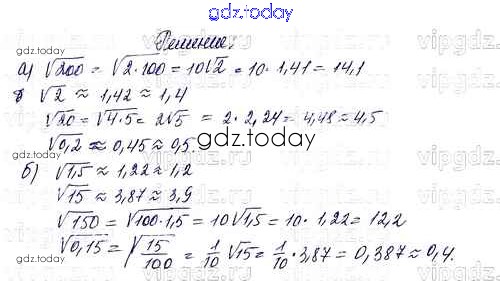 gdz.today
Решение:
а) √200 = √2·100 = 10√2 = 10·1,41 = 14,1
gdz.today
б √2 ≈ 1,42 ≈ 1,4
√20 = √4·5 = 2√5 = 2·2,24 = 4,48 ≈ 4,5
gdz.today
√0,2 ≈ 0,45 ≈ 0,5.
б) √1,5 ≈ 1,22 ≈ 1,2
√15 ≈ 3,87 ≈ 3,9
√150 = √100·1,5 = 10√1,5 = 10·1,22 = 12,2
√0,15 = √15/100 = 1/10 √15 = 1/10·3,87 = 0,387 ≈ 0,4.
gdz.today